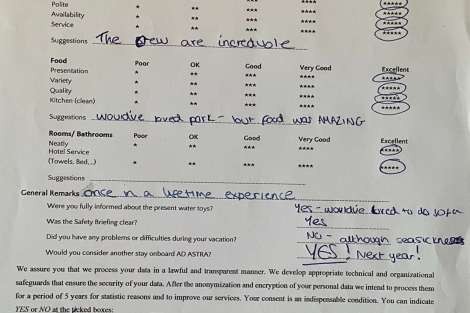 Polite * ** *** **** *****
Availability * ** *** **** *****
Service * ** *** **** *****
Suggestions The crew are increduble
Food Poor OK Good Very Good Excellent
Presentation * ** *** **** *****
Variety * ** *** **** *****
Quality * ** *** **** *****
Kitchen (clean) * ** *** **** *****
Suggestions wouldive loved pork - but food was AMAZING
Rooms/ Bathrooms Poor OK Good Very Good Excellent
Neatly * ** *** **** *****
Hotel Service
(Towels, Bed,..) * ** *** **** *****
Suggestions
General Remarks once in a lifetime experience
Were you fully informed about the present water toys? Yes - wouldive loved to do
Was the Safety Briefing clear? Yes
Did you have any problems or difficulties during your vacation? NO - although seasickness
Would you consider another stay onboard AD ASTRA? YES! Next year!
We assure you that we process your data in a lawful and transparent manner. We develop appropriate technical and organizational
safeguards that ensure the security of your data. After the anonymization and encryption of your personal data we intend to process them
for a period of 5 years for statistic reasons and to improve our services. Your consent is an indispensable condition. You can indicate
YES or NO at the picked boxes: